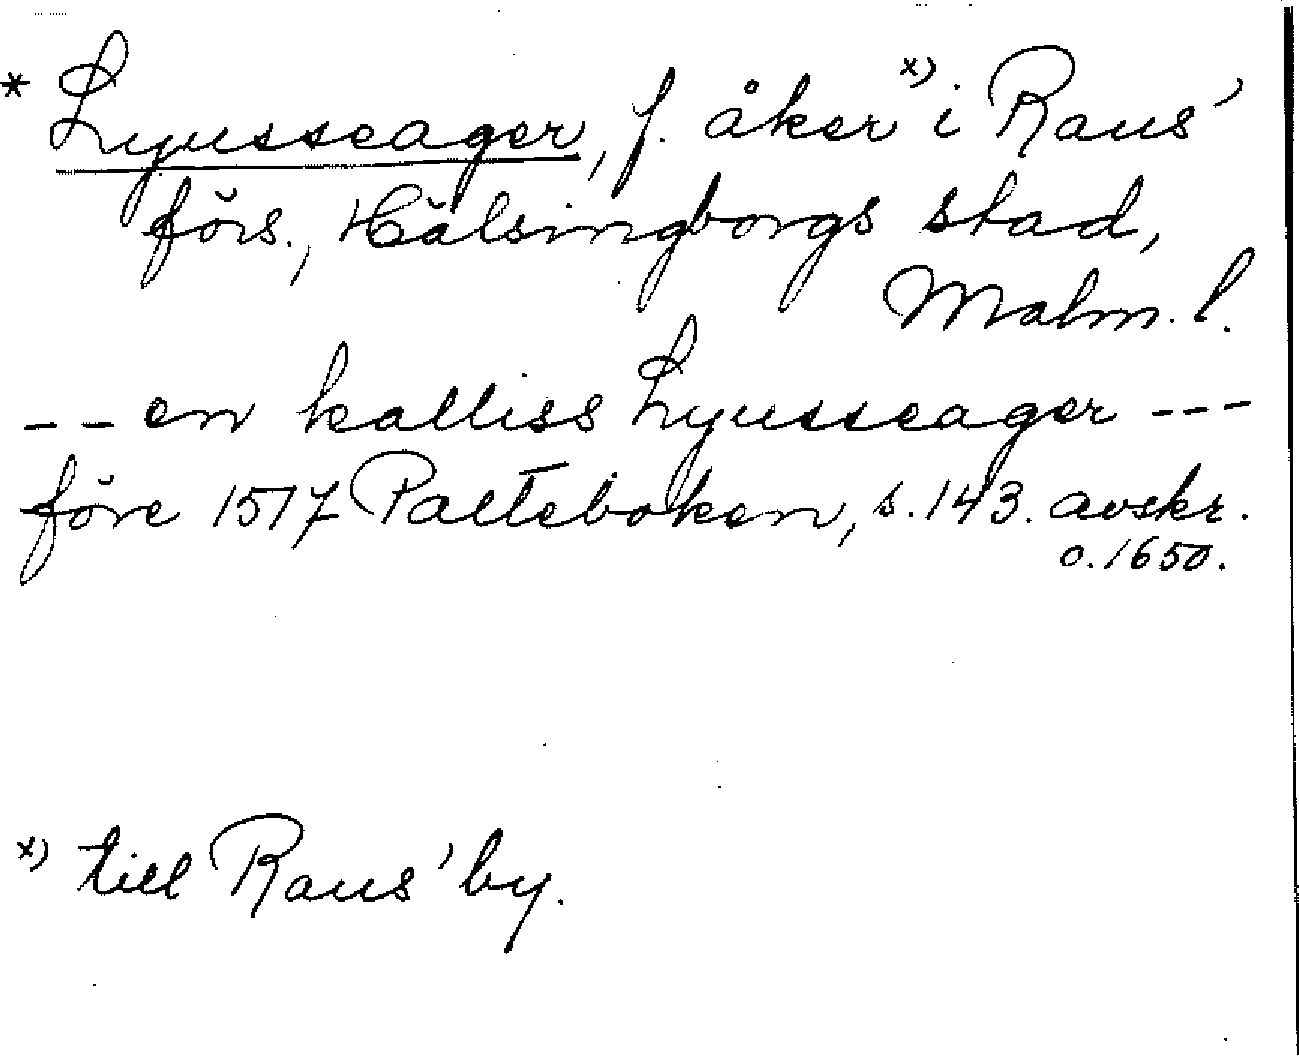 * Lyusseager, f. åker x) i Raus'
förs., Hälsingborgs stad,
Malm. l.
-- en kalliss Lyusseager ---
före 1517 Palteboken, s. 143. avskr.
o. 1650.
x) till Raus' by.